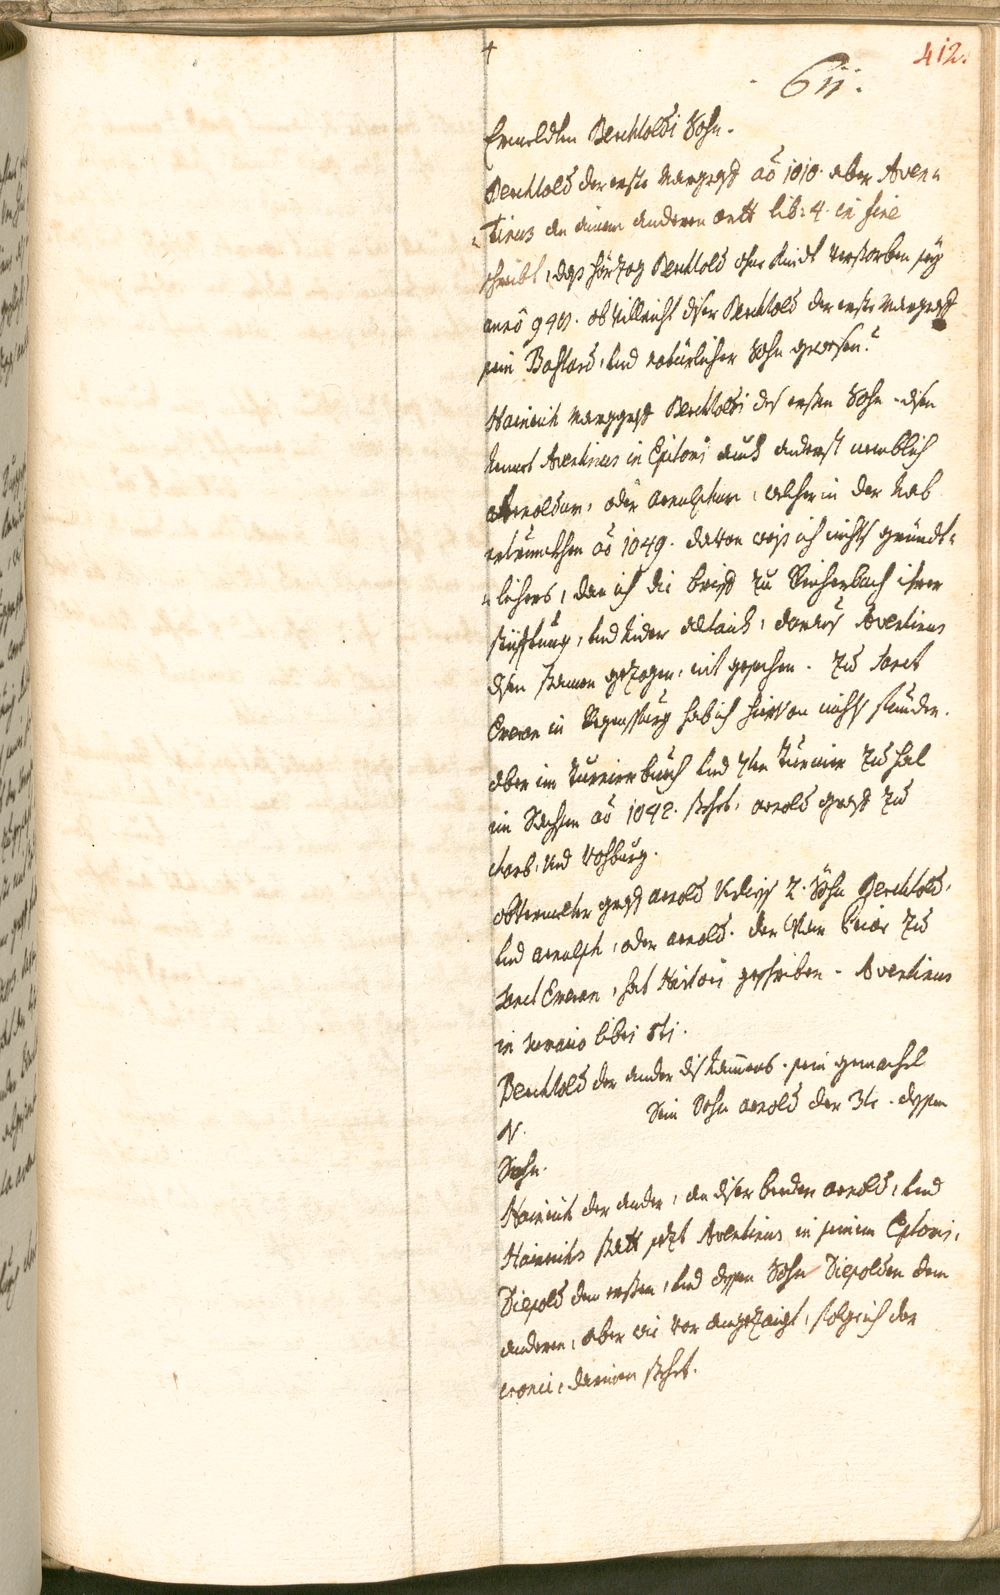 412.
611.
Ermeldten Berchtoldi Sohn.
Berchtold der erste Marggraff aõ 1010. aber Aven=
=tinus an einem anderen ortt lib: 4. in fine
schreibt, das Hörzog Berchtold ohne Kindt verstorben sey
anno 948. ob villeicht diser Berchtold der erste Marggraff
sein Bastard, und natürlicher Sohn gewesen?
Hainrich Marggraff Berchtoldi des ersten Sohn. disen
nennet Aventinus in Epitomi auch anderst nemblich
Arnoldum, oder Arnulphum, welcher in der Nab
ertrunckhen aõ 1049. davon weis ich nichts gründt=
=liches, dan ich die brieff zu Reichenbach ihrer
stüfftung, und Nider Altaich, daraus Aventinus
disen stamen gezogen, nit gesechen. Zu Sanct
Emeran in Regenspurg hab ich hiervon nichts funden.
aber im Turnierbuch und 7ten Turnier zu Hal
in Sachsen aõ 1042. steht, Arnold graff zu
Harb, und Vohburg.
obvermelter graff Arnold verliess 2. Söhn Berchtold,
und Arnulph, oder Arnold. der war Prior zu
Sanct Emeran, hat Historis geschriben. Aventinus
in libri 5ti.
Berchtold der ander dis Namens. sein gemachel
N. Sein Sohn Arnold der 3te. dessen
Sohn.
Hainrich der ander, an diser beeden Arnold, und
Hainrichs statt sezt Aventinus in seinem Epitomi,
Diepold den ersten, und dessen Sohn Diepolden den
anderen, aber wie vor angezaigt, stehet.